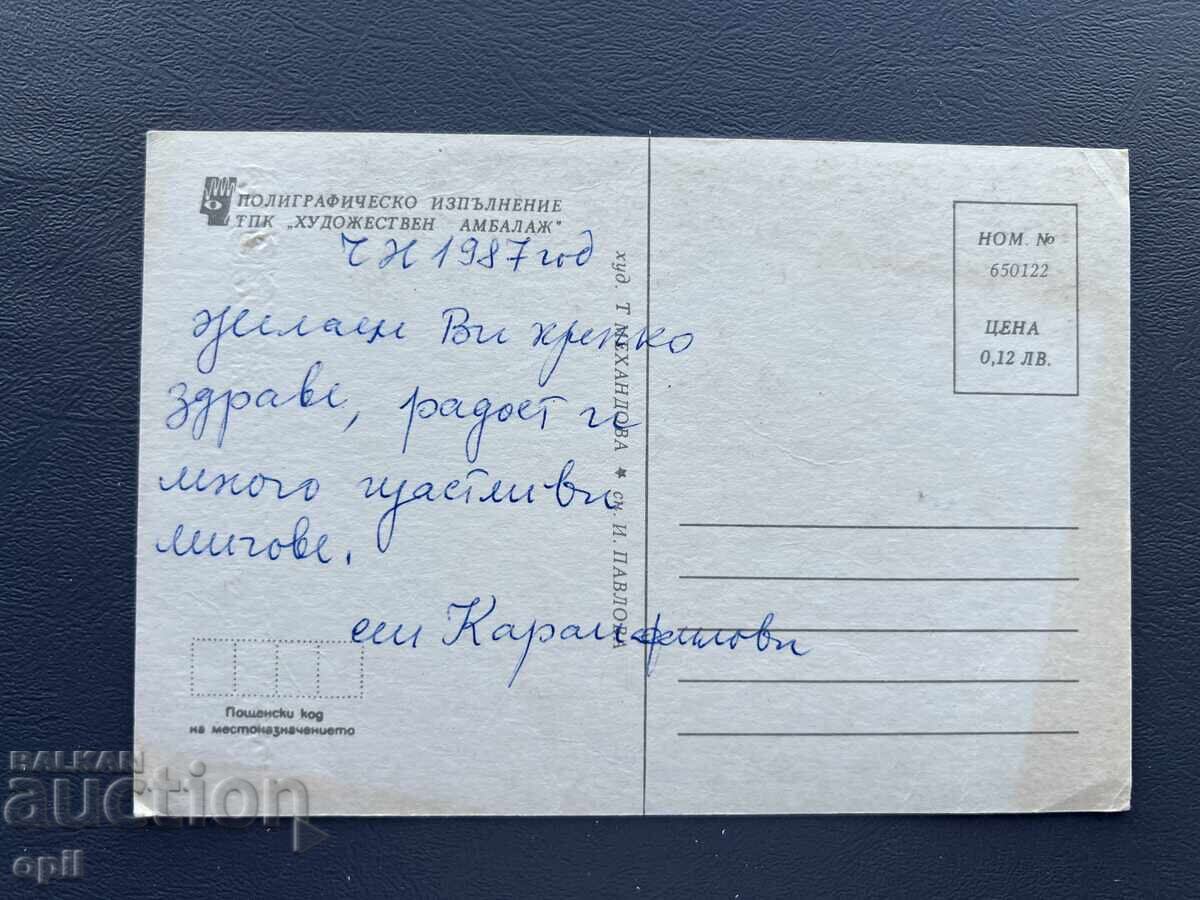 ПОЛИГРАФИЧЕСКО ИЗПЪЛНЕНИЕ
ТПК „ХУДОЖЕСТВЕН АМБАЛАЖ"
ЧН 1987 год
Желаем Ви крепко
здраве, радост и
много щастливи
мигове.
сем Каранфилови
Пощенски код
на местоназначението
худ. Т МЕХАНДОВА ★ сн. И. ПАВЛОВА
НОМ. №
650122
ЦЕНА
0,12 ЛВ.
BALKAN
auction
opil